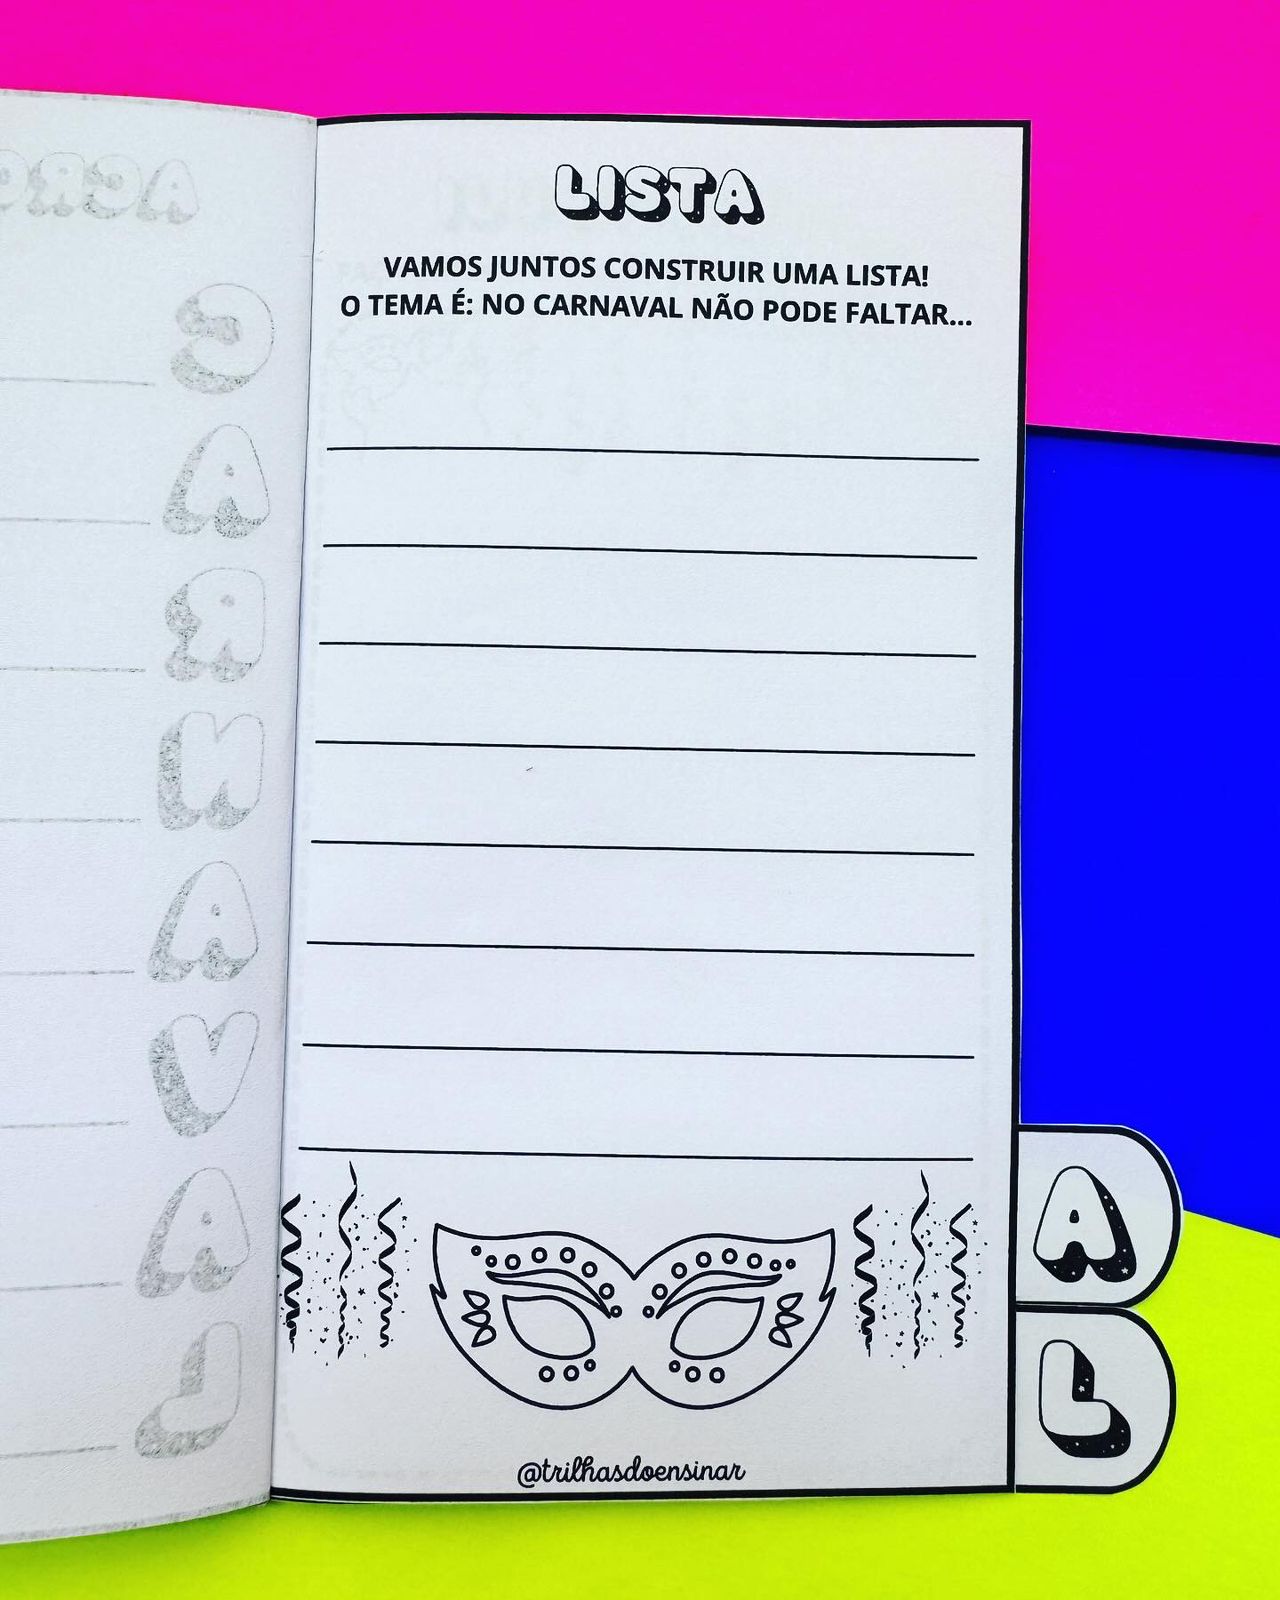 LISTA
VAMOS JUNTOS CONSTRUIR UMA LISTA!
O TEMA É: NO CARNAVAL NÃO PODE FALTAR...
@trilhasdoensinar
A
L
C
A
R
N
A
V
A
L